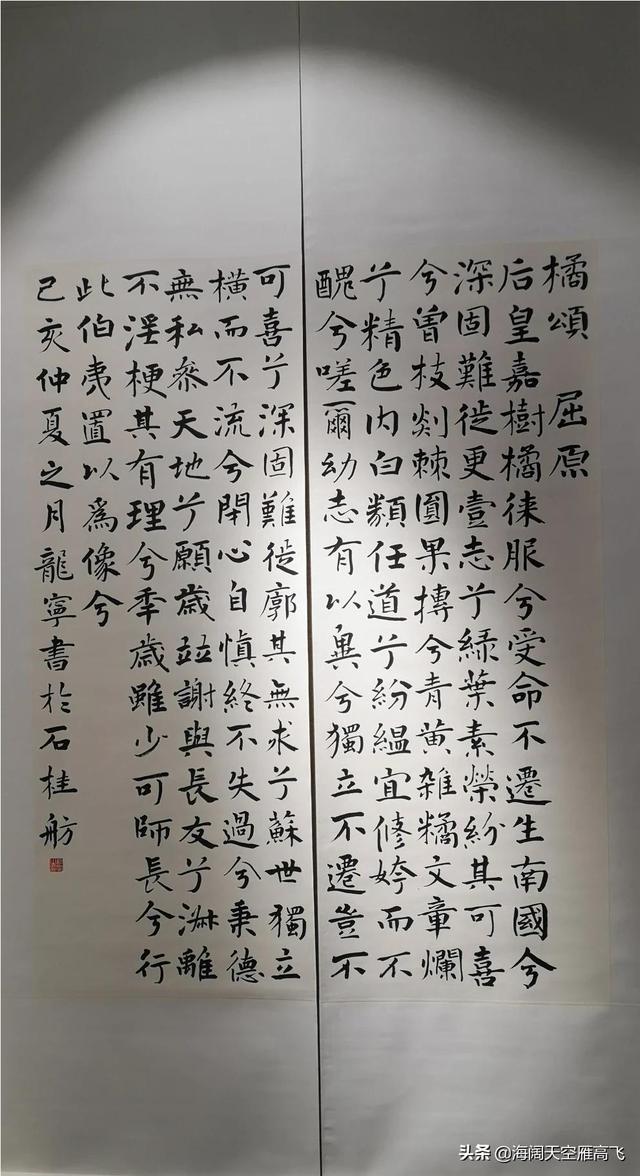 橘頌 屈原
后皇嘉樹橘徠服兮受命不遷生南國兮
深固難徙更壹志兮綠葉素榮紛其可喜
兮曾枝剡棘圓果摶兮青黄雑糅文章爛
兮精色内白類任道兮紛緼宜脩姱而不
醜兮嗟爾幼志有以異兮獨立不遷豈不
可喜兮深固難徙廓其無求兮蘇世獨立
橫而不流兮閉心自慎終不失過兮秉德
無私參天地兮願歲竝謝與長友兮淋離
不淫梗其有理兮年歲雖少可師長兮行
此伯夷置以爲像兮
己亥仲夏之月龍寧書於石桂舫
头条 @海阔天空雁高飞